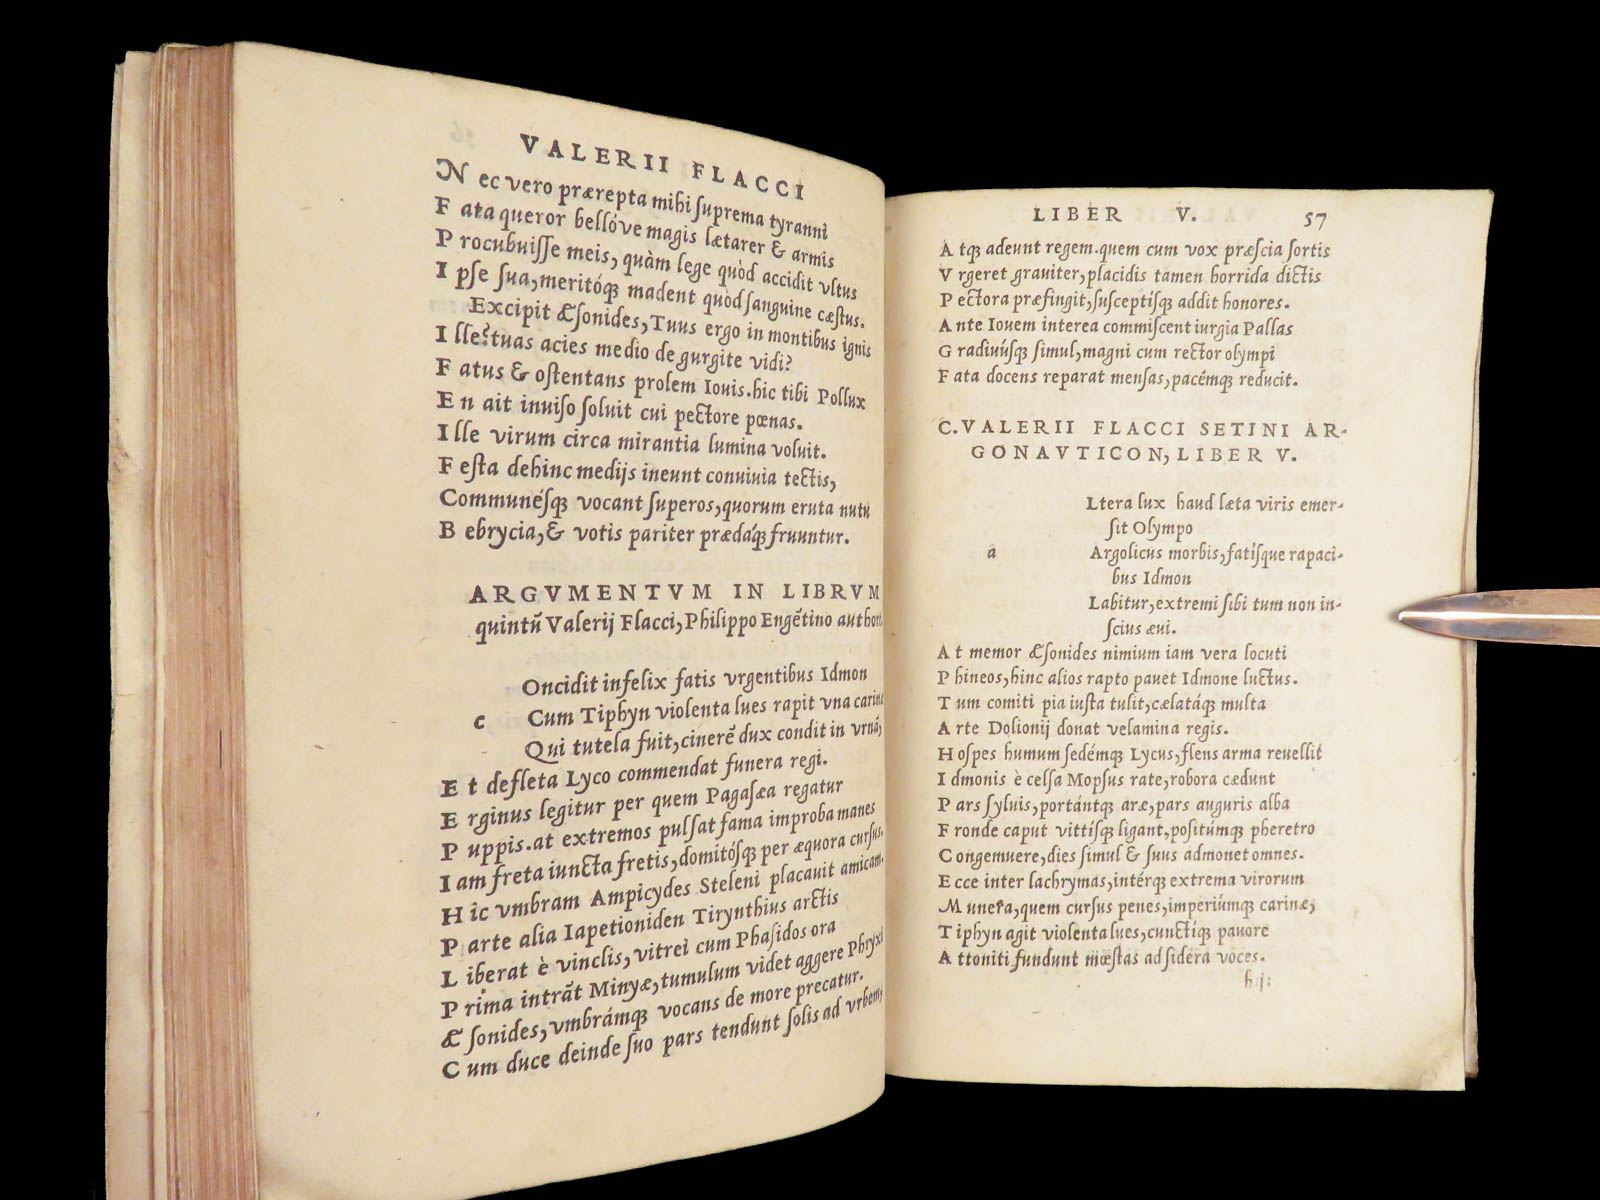 VALERII FLACCI
Nec vero prærepta mihi suprema tyranni
Fata queror bellóve magis lætarer & armis
Procubuisse meis, quàm lege quòd accidit vltus
Ipse sua, meritóq; madent quòd sanguine cæstus.
Excipit Æsonides, Tuus ergo in montibus ignis
Ille? tuas acies medio de gurgite vidi?
Fatus & ostentans prolem Iouis. hic tibi Pollux
En ait inuiso soluit cui pectore pœnas.
Ille virum circa mirantia lumina voluit.
Festa dehinc medijs ineunt conuiuia tectis,
Communésq; vocant superos, quorum eruta nutu
Bebrycia, & votis pariter prædáq; fruuntur.
ARGVMENTVM IN LIBRVM
quintũ Valerij Flacci, Philippo Engẽtino author
c
Oncidit infelix fatis vrgentibus Idmon
Cum Tiphyn violenta lues rapit vna carinæ
Qui tutela fuit, cinerẽ dux condit in vrna,
Et defleta Lyco commendat funera regi.
Erginus legitur per quem Pagasæa regatur
Puppis. at extremos pulsat fama improba manes
Iam freta iuncta fretis, domitósq; per æquora cursus.
Hîc vmbram Ampicydes Steleni placauit amicam.
Parte alia Iapetioniden Tirynthius arctis
Liberat è vinclis, vitrei cum Phasidos ora
Prima intrãt Minyæ, tumulum videt aggere Phryxi
Æsonides, vmbrámq; vocans de more precatur.
Cum duce deinde suo pars tendunt solis ad vrbem,
LIBER V. 57
Atq; adeunt regem. quem cum vox præscia sortis
Vrgeret grauiter, placidis tamen horrida dictis
Pectora præfingit, susceptísq; addit honores.
Ante Iouem interea commiscent iurgia Pallas
Gradiuúsq; simul, magni cum rector olympi
Fata docens reparat mensas, pacémq; reducit.
C. VALERII FLACCI SETINI AR-
GONAVTICON, LIBER V.
a
Ltera lux haud læta viris emer-
sit Olympo
Argolicus morbis, fatísque rapaci-
bus Idmon
Labitur, extremi sibi tum non in-
scius æui.
At memor Æsonides nimium iam vera locuti
Phineos, hinc alios rapto pauet Idmone luctus.
Tum comiti pia iusta tulit, cælatáq; multa
Arte Dolionij donat velamina regis.
Hospes humum sedémq; Lycus, flens arma reuellit
Idmonis è celsa Mopsus rate, robora cædunt
Pars syluis, portántq; aræ, pars auguris alba
Fronde caput vittísq; ligant, positúmq; pheretro
Congemuere, dies simul & suus admonet omnes.
Ecce inter lachrymas, intérq; extrema virorum
Munera, quem cursus penes, imperiúmq; carinæ,
Tiphyn agit violenta lues, cunctíq; pauore
Attoniti fundunt mœstas ad sidera voces.